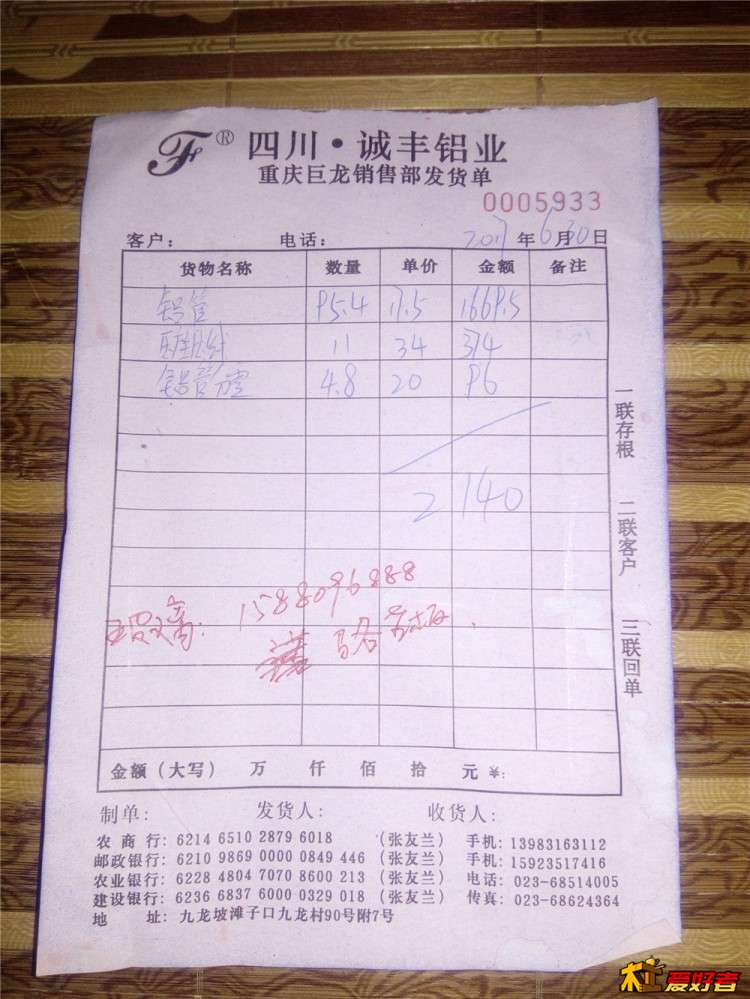 F ® 四川·诚丰铝业
重庆巨龙销售部发货单
0005933
客户： 电话： 2017年6月30日
货物名称 数量 单价 金额 备注
铝管 95.4 17.5 1669.5
11 34 374
铝管 4.8 20 96
2140
一联存根
二联客户
三联回单
玻璃: 1588096888
金额（大写） 万 仟 佰 拾 元 ¥:
制单: 发货人: 收货人:
农商行: 6214 6510 2879 6018 （张友兰） 手机: 13983163112
邮政银行: 6210 9869 0000 0849 446 （张友兰） 手机: 15923517416
农业银行: 6228 4804 7070 8600 213 （张友兰） 电话: 023-68514005
建设银行: 6236 6837 6000 0329 018 （张友兰） 传真: 023-68624364
地址: 九龙坡滩子口九龙村90号附7号
爱好者